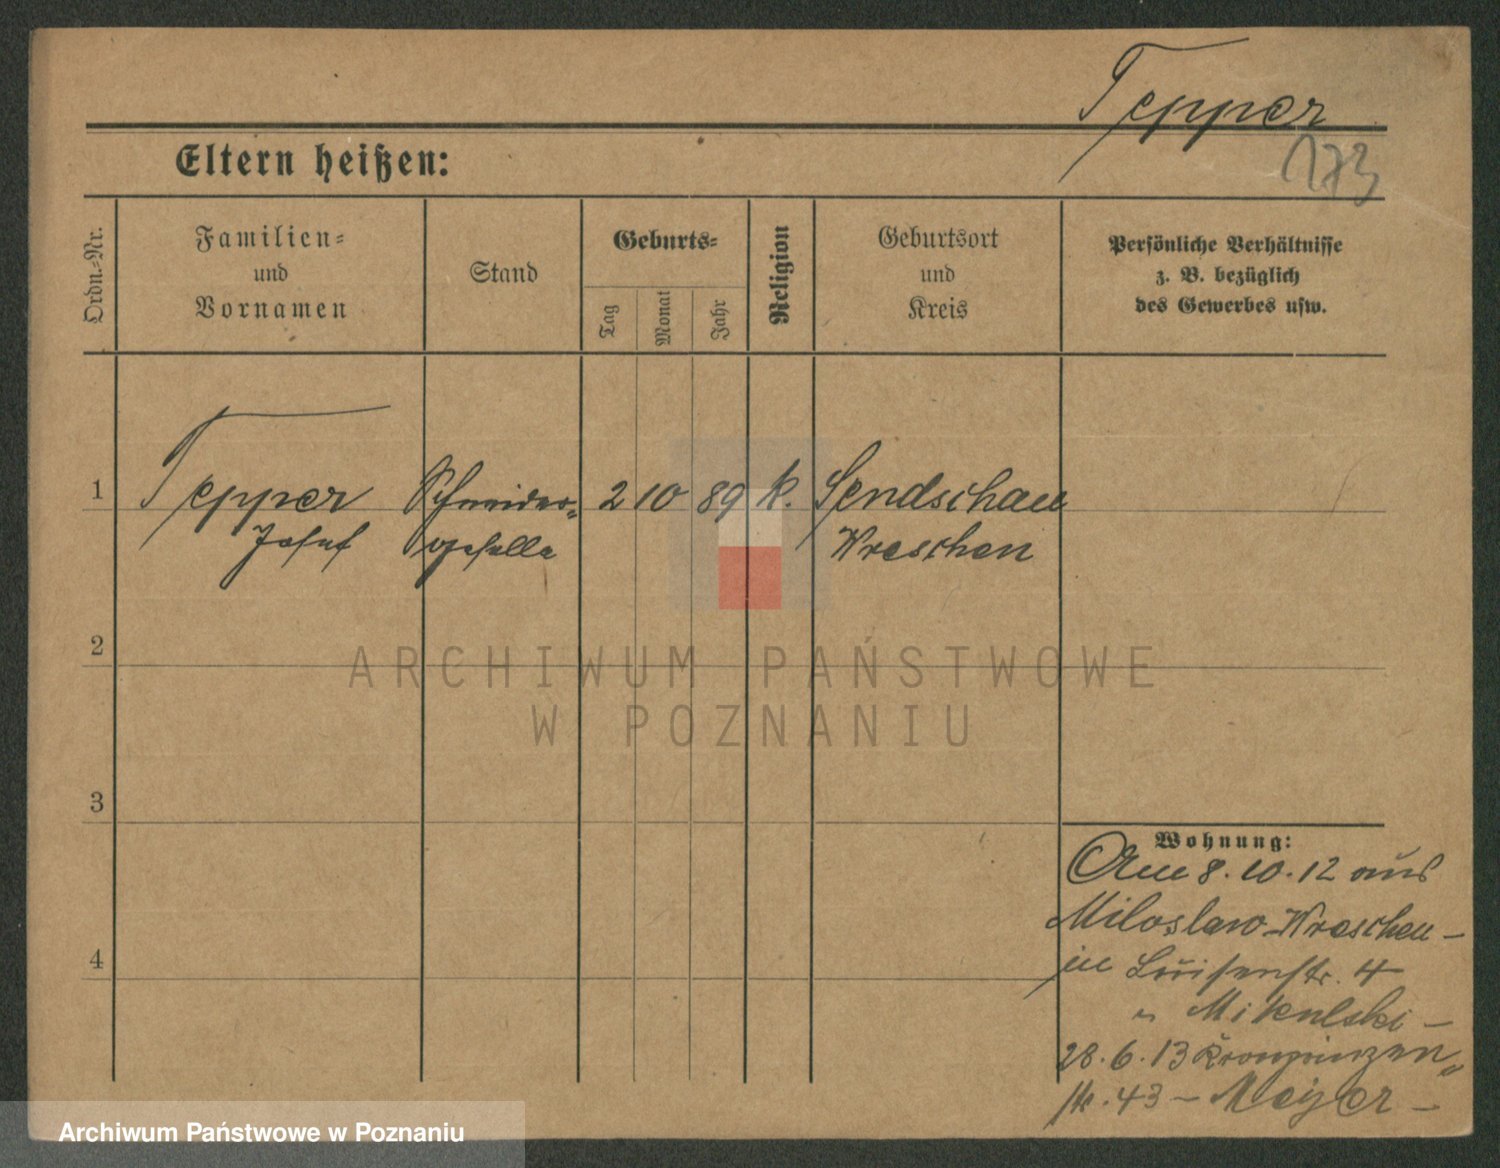 Tepper
173
Eltern heißen:
Ordn.-Nr.
Familien-
und
Vornamen
Stand
Geburts-
Tag
Monat
Jahr
Religion
Geburtsort
und
Kreis
Persönliche Verhältnisse
z. B. bezüglich
des Gewerbes usw.
1 Tepper Schneider- 2 10 89 k. Sendschau
Josef geselle Wreschen
2
3
4
Wohnung:
Am 8.10.12 aus
Miloslaw Wreschen -
in Luisenstr. 4
Mikulski -
28.6.13 Kronprinzen-
str. 43 - Meyer -
ARCHIWUM PAŃSTWOWE
W POZNANIU
Archiwum Państwowe w Poznaniu